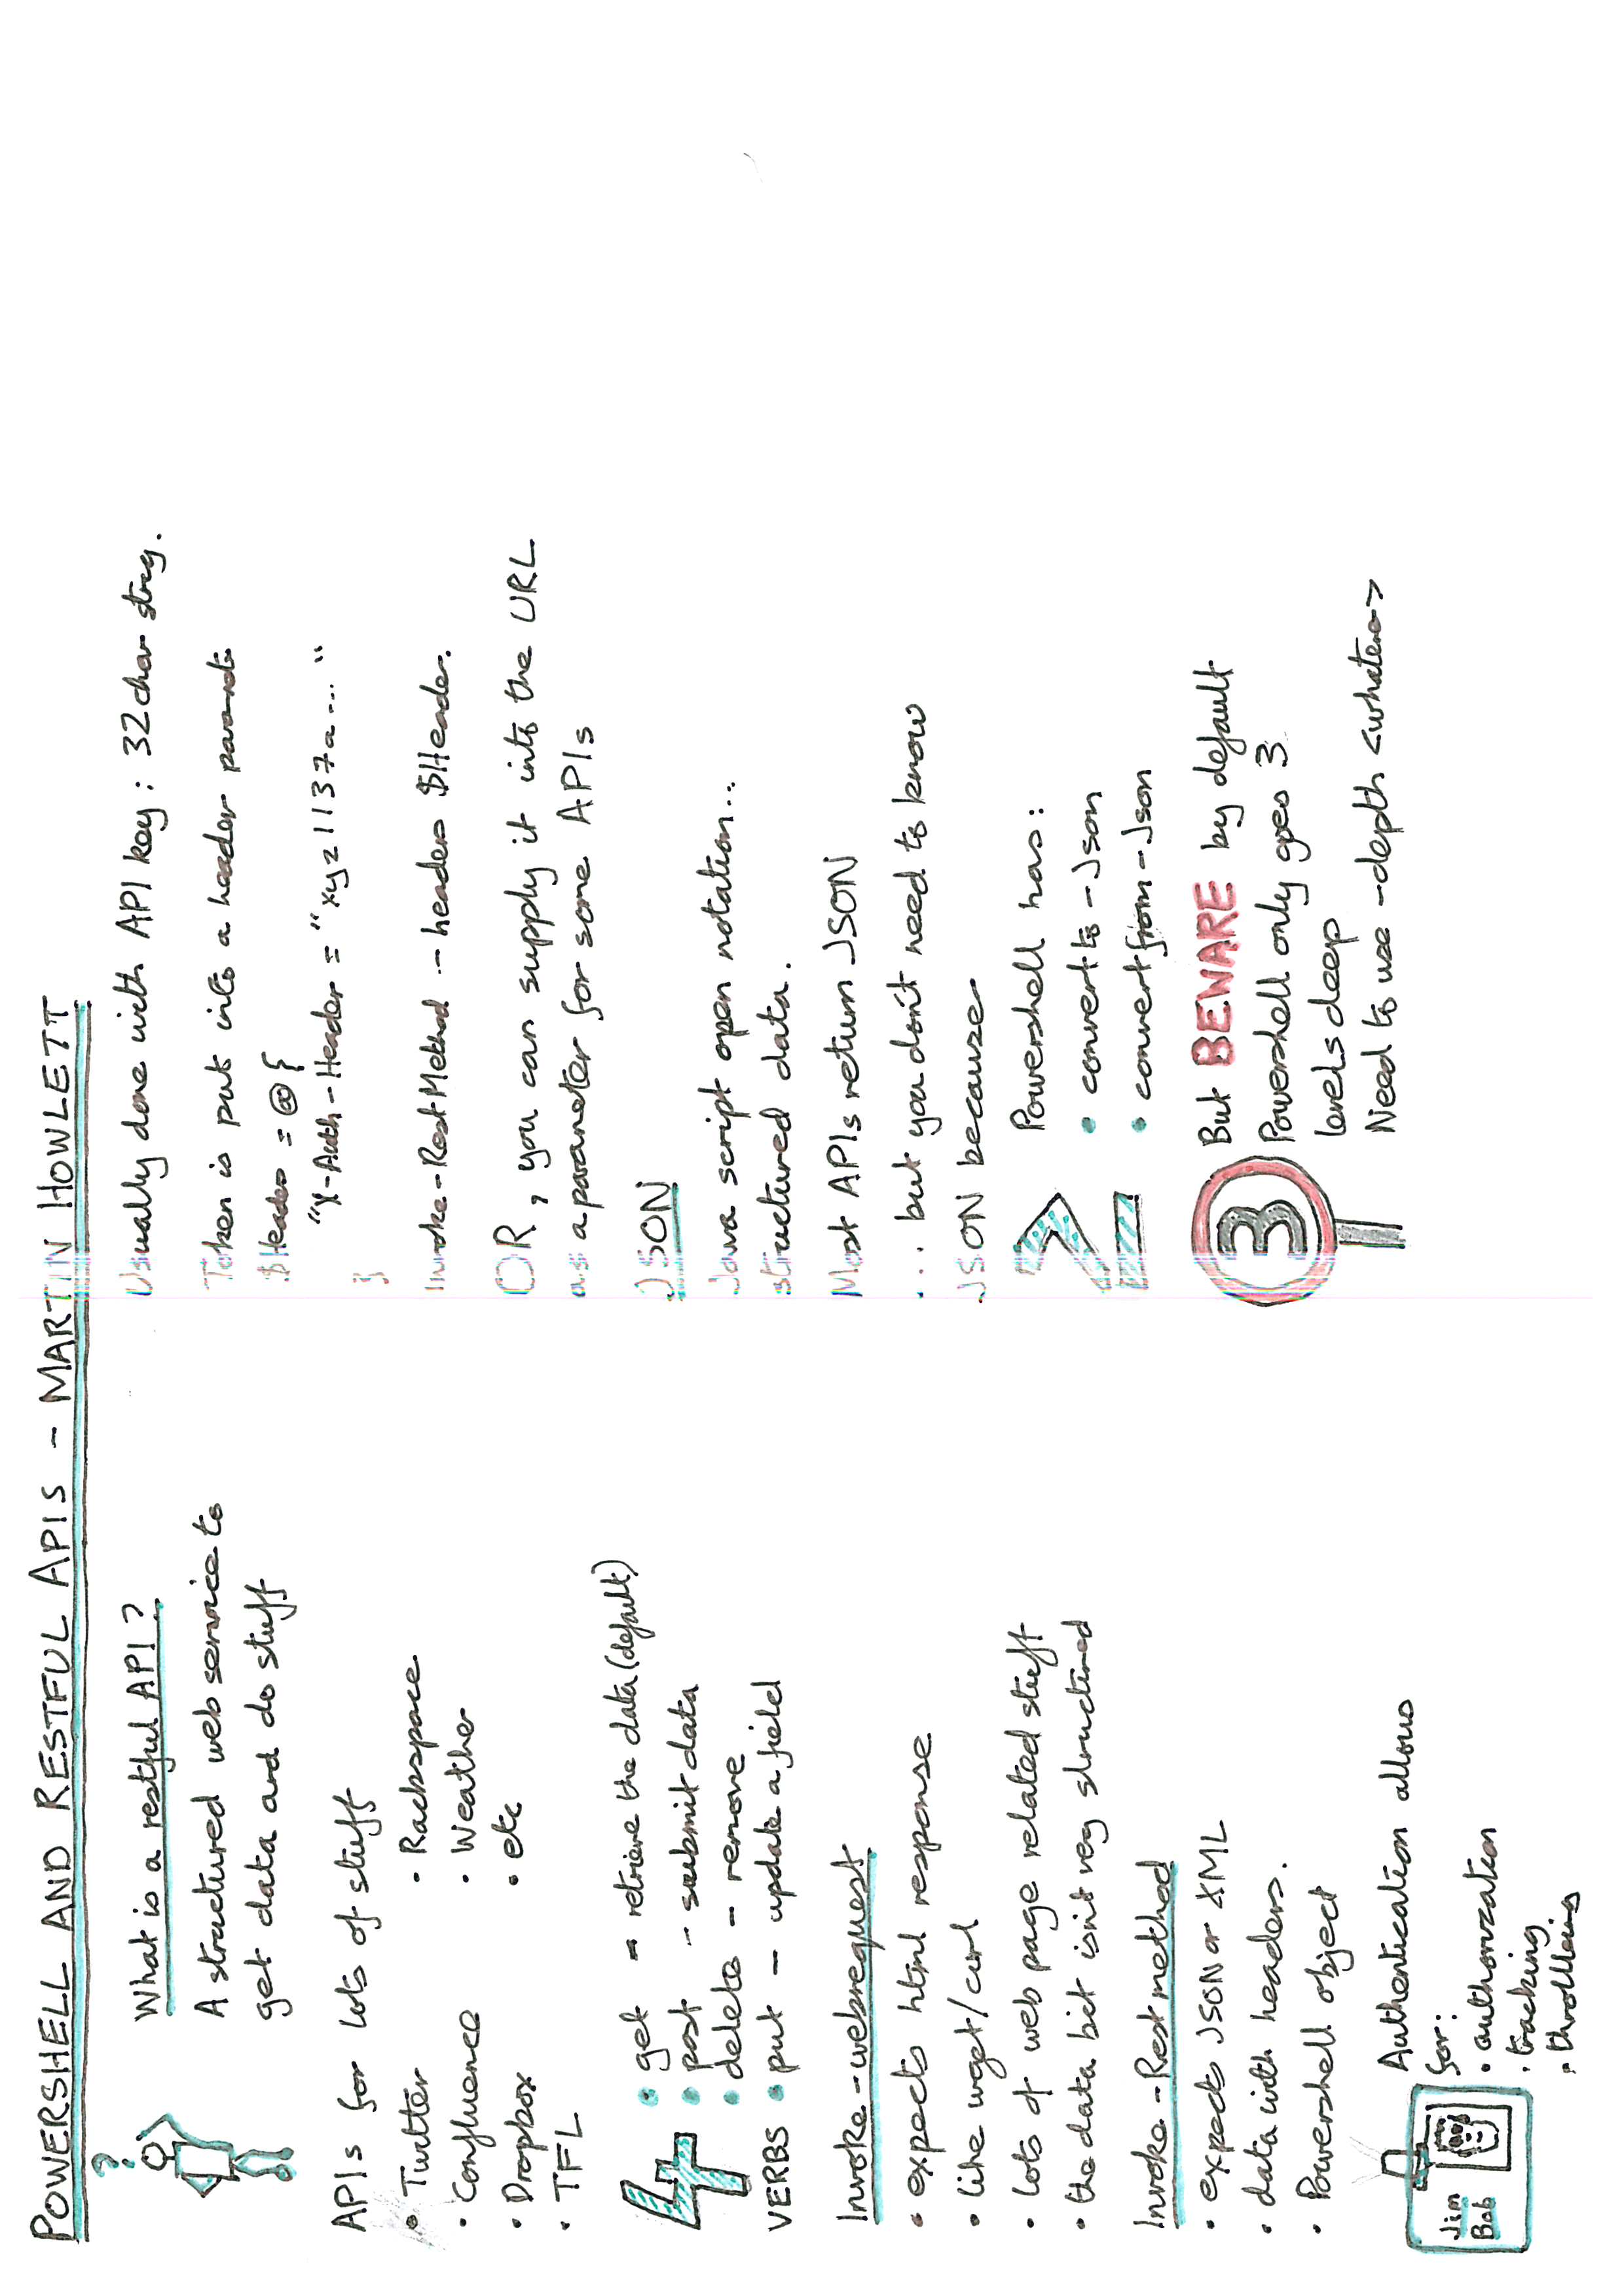 POWERSHELL AND RESTFUL APIS - MARTIN HOWLETT
?
What is a restful API?
A structured web service to
get data and do stuff
APIs for lots of stuff
• Twitter
• Confluence
• Dropbox
• TFL
• Rackspace
• Weather
• etc
4
VERBS
• get - retrieve the data (default)
• post - submit data
• delete - remove
• put - update a field
Invoke-webrequest
• expects html response
• like wget/curl
• lots of web page related stuff
• the data bit isn't very structured
Invoke-Restmethod
• expects JSON or XML
• data with headers.
• Powershell object
Jim
Bob
Authentication allows
for:
• authorization
• tracking
• throttling
Usually done with API key: 32 char string.
Token is put into a header parameter
$Header = @{
"X-Auth-Header = "xyz1137a... "
}
Invoke-RestMethod -headers $Header.
OR, you can supply it into the URL
as a parameter for some APIs
JSON
Java script open notation...
structured data.
Most APIs return JSON
... but you don't need to know
JSON because
Powershell has:
• convertto-Json
• convertfrom-Json
3
But BEWARE by default
Powershell only goes 3
levels deep
Need to use -depth <whatever>